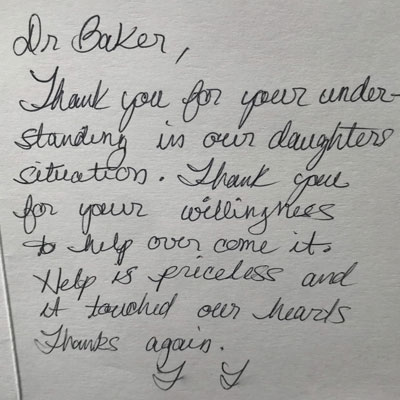 Dr Baker,
Thank you for your under-
standing in our daughters
situation. Thank you
for your willingness
to help over come it.
Help is priceless and
it touched our hearts
Thanks again.